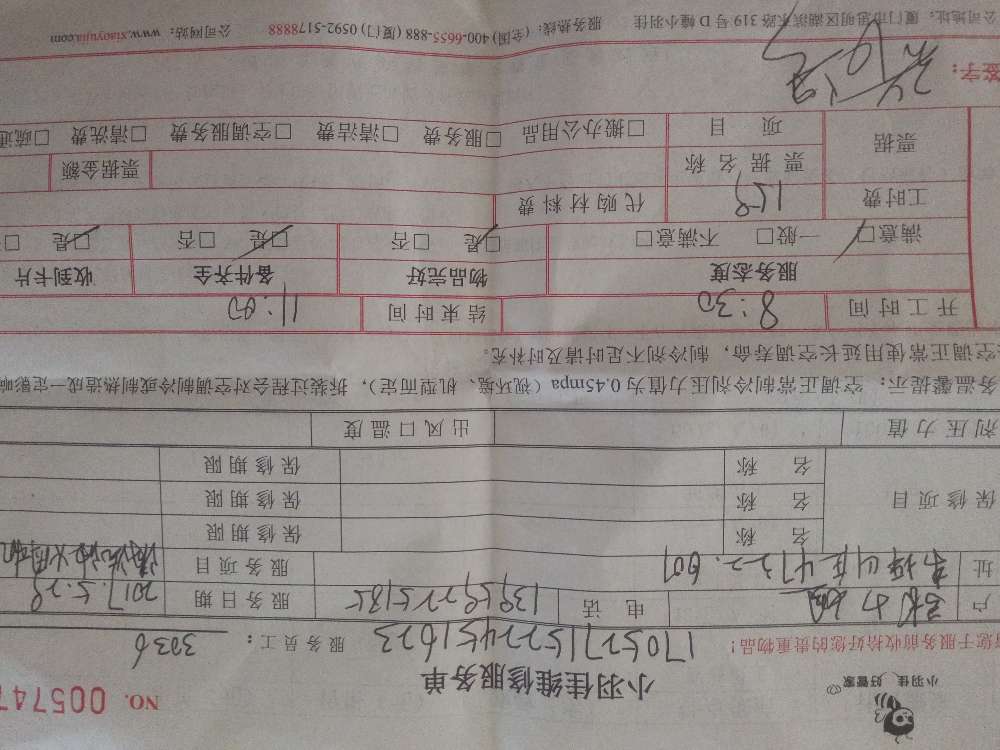 小羽佳 好管家
小羽佳维修服务单
NO. 005747
您于服务前收拾好您的贵重物品!
服务员工: 3036
户 电 话 服务日期 2017.5.29
址 服务项目
保修项目 名 称 保修期限
名 称 保修期限
名 称 保修期限
剂压力值 出风口温度
务温馨提示: 空调正常制冷剂压力值为0.45mpa(视环境、机型而定),拆装过程会对空调制冷或制热造成一定影响
空调正常使用延长空调寿命,制冷剂不足时请及时补充。
开工时间 8:30 结束时间 11:00
服务态度 物品完好 备件齐全 收到卡片
满意□ 一般□ 不满意□ □是 □否 □是 □否 □是 □
工时费 159 代购材料费
票据 票据名称 票据金额
项 目 □搬办公用品 □服务费 □清洁费 □空调服务费 □清洗费 □疏通
签字:
公司地址: 厦门市思明区湖滨东路319号D幢小羽佳 服务热线: (全国) 400-6655-888 (厦门) 0592-5178888 公司网站: www.xiaoyujia.com